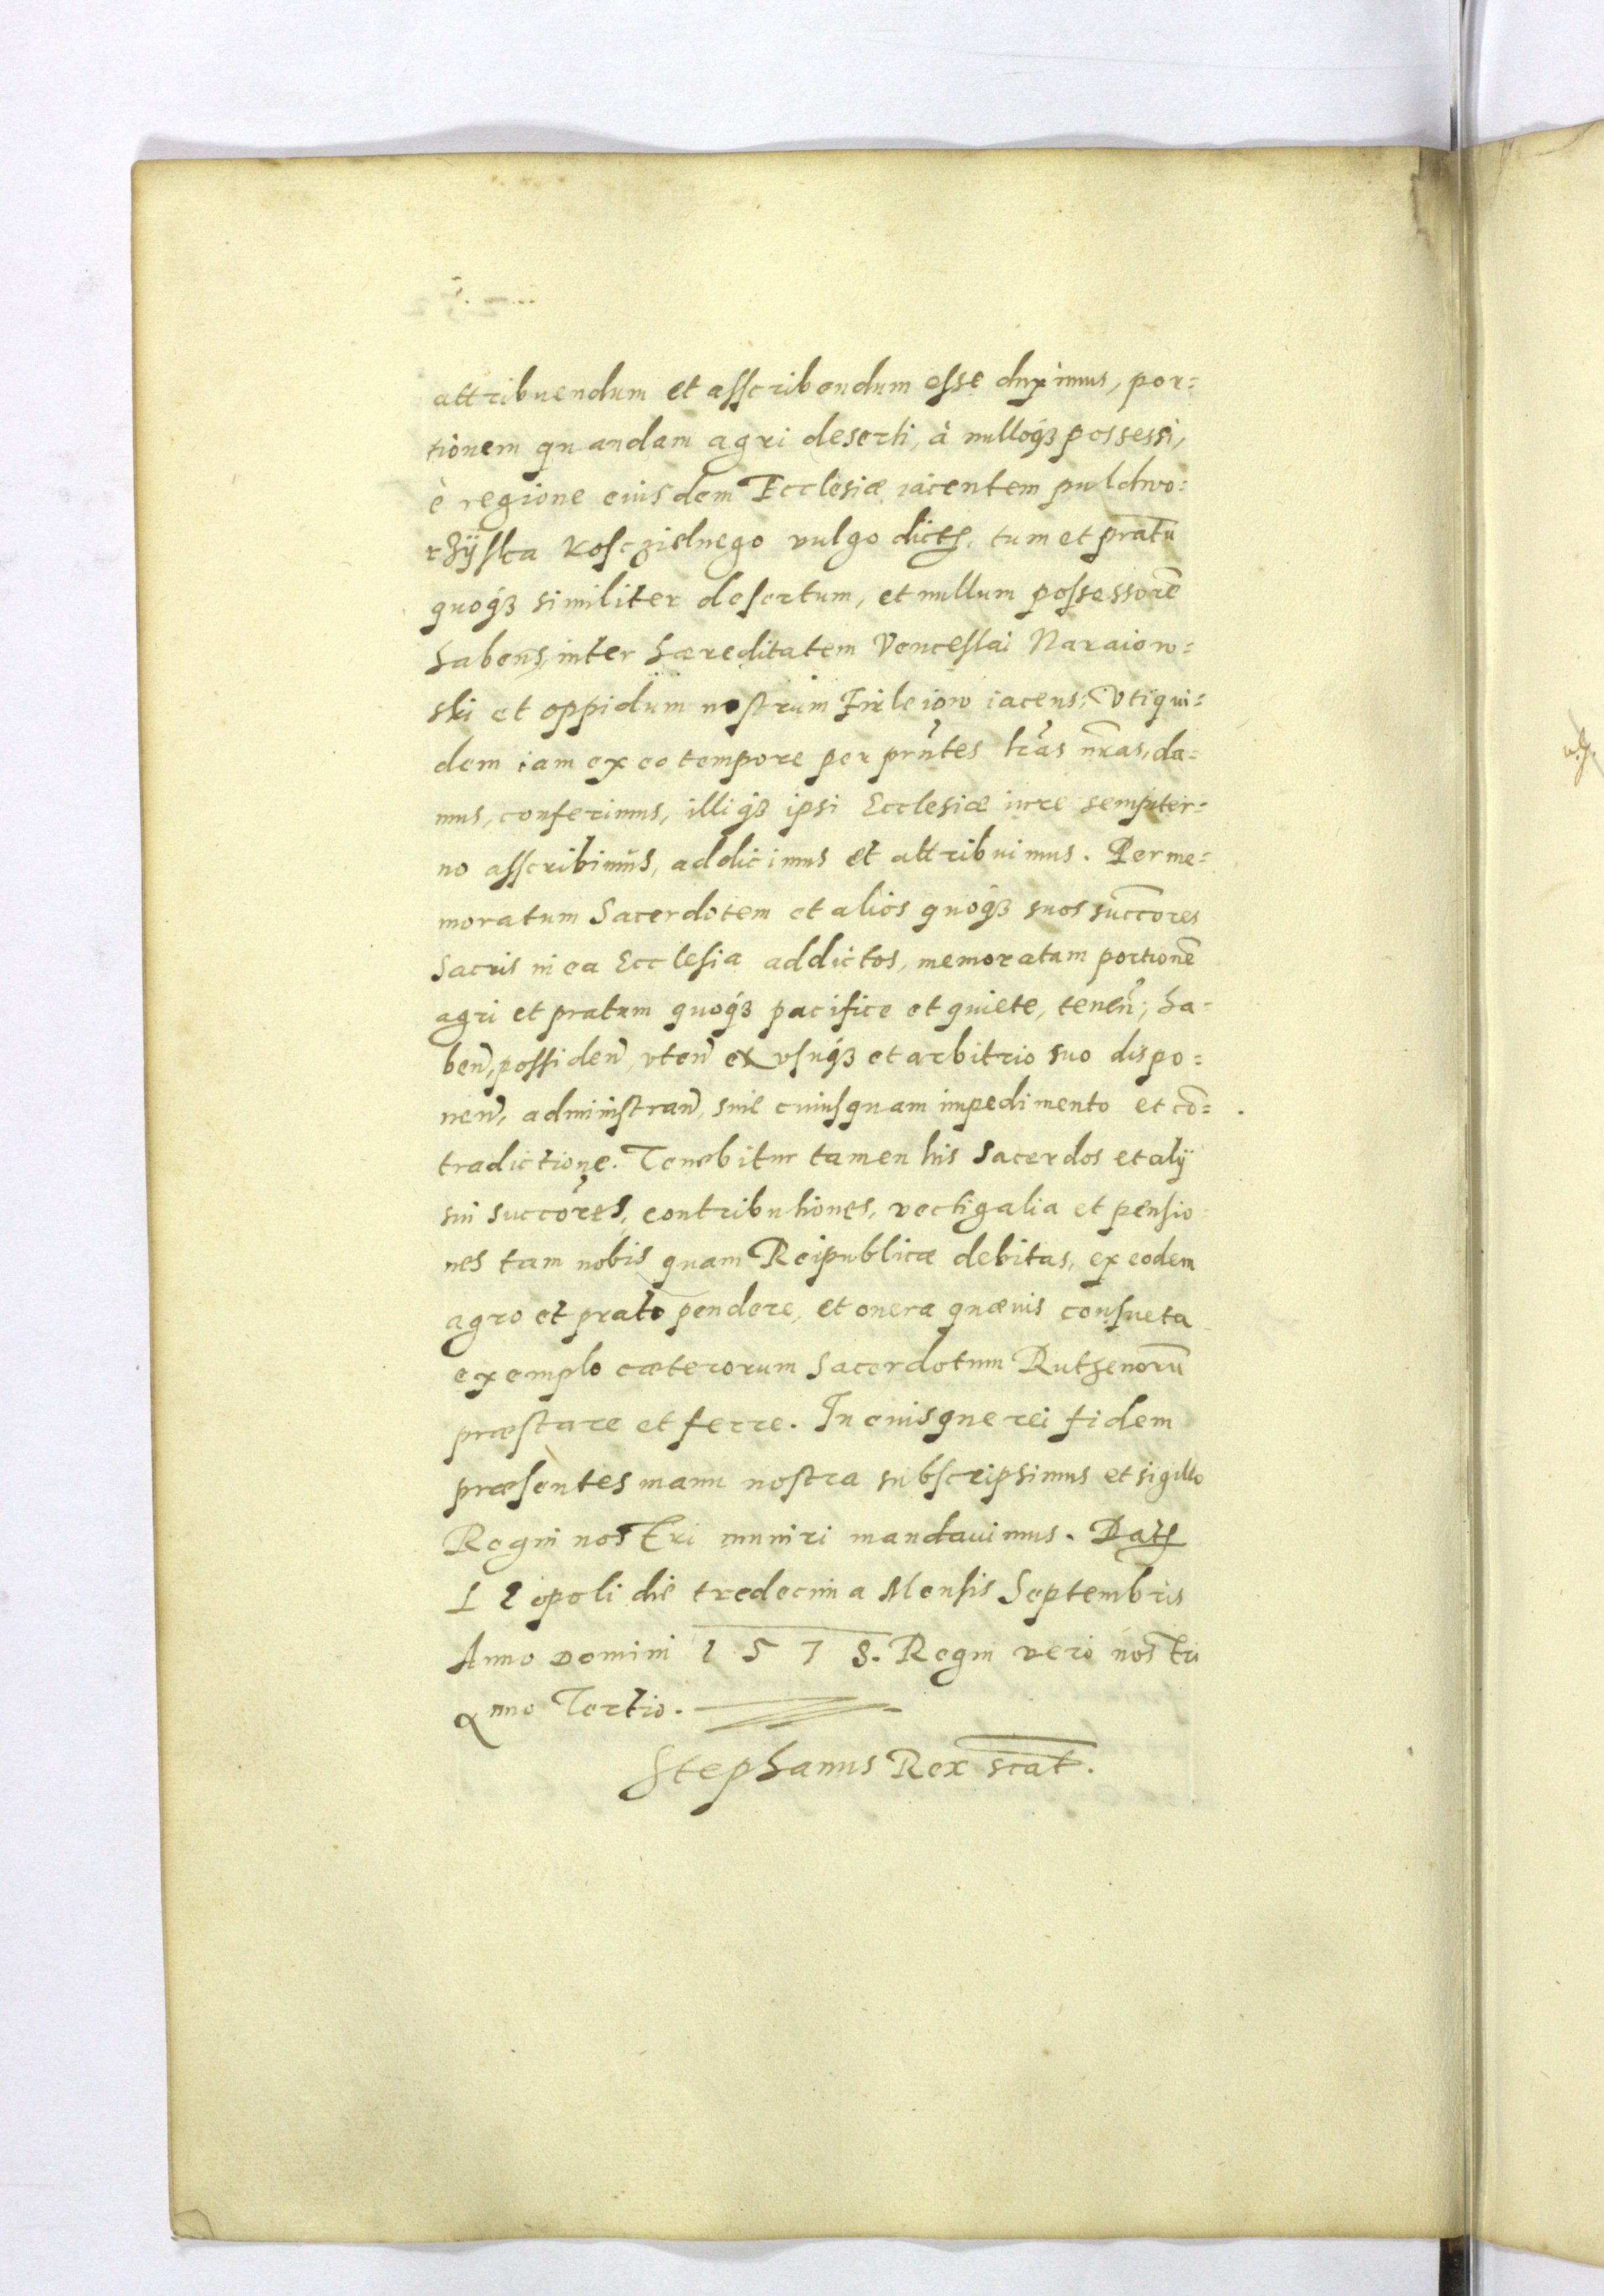 attribuendum et asscribendum esse duximus, por:
tionem quandam agri deserti, à nulloq́ꝫ possessi,
è regione eiusdem Ecclesiæ iacentem puldwo:
rzÿska Kosczielnego vulgo dictꝭ, tum et pratū
quoq́ꝫ similiter desertum, et nullum possessorē
habens, inter hæreditatem Venceslai Naraiow:
ski et oppidum nostrum Firleiow iacens: Vtiqui:
dem iam ex eo tempore per prn̄tes lr̄as nr̄as, da:
mus, conferimus, illiq́ꝫ ipsi Ecclesiæ iure sempiter:
no asscribimus, addicimus et attribuimus. Per me:
moratum Sacerdotem et alios quoq́ꝫ suos succōres
Sacris in ea Ecclesia addictos, memoratam portionē
agri et pratum quoq́ꝫ pacifice et quiete, tenēn̄, ha:
ben̄, possiden̄, vten̄ ex vsuq́ꝫ et arbitrio suo dispo:
nen̄, administran̄, sine cuiusquam impedimento et cō:
tradictione. Tenebitur tamen his Sacerdos et alÿ
sui succōres, contributiones, vectigalia et pensio:
nes tam nobis quam Reipublicæ debitas, ex eodem
agro et prato pendere, et onera quæuis consueta
exemplo cæterorum Sacerdotum Ruthenorū
præstare et ferre. In cuius que rei fidem
præsentes manu nostra subscripsimus et sigillo
Regni nostri muniri mandauimus. Datꝭ
Leopoli die tredecima Mensis Septembris
Anno Domini 1578. Regni vero nostri
anno Tertio.
Stephanus Rex scat̄.